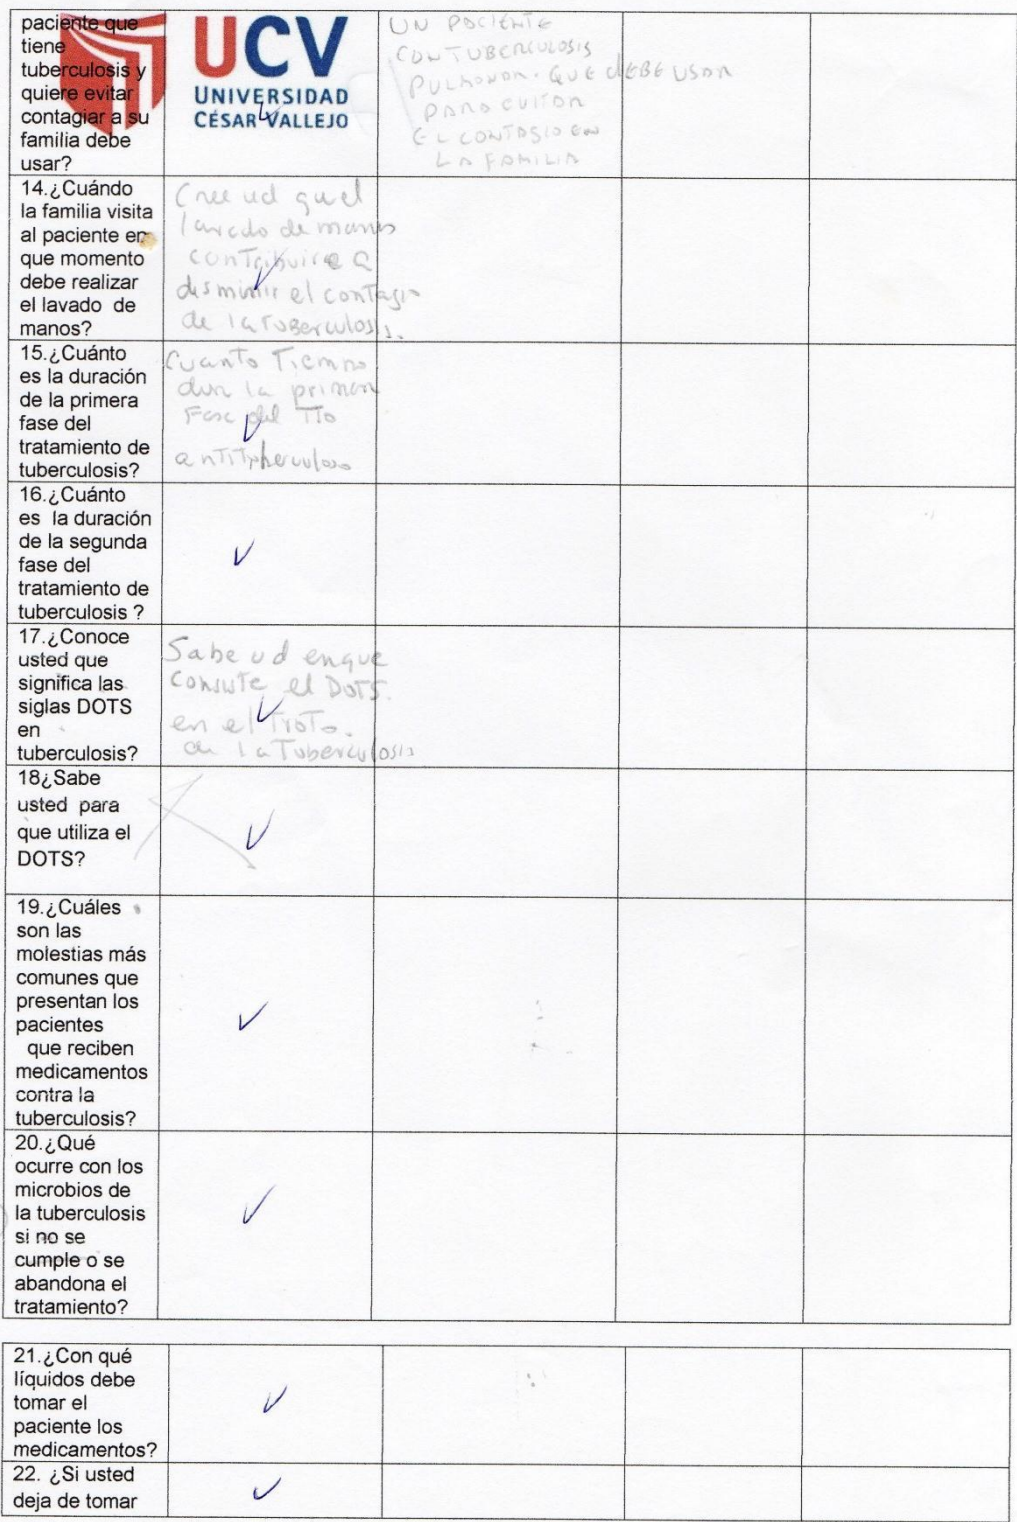 paciente que
tiene
tuberculosis y
quiere evitar
contagiar a su
familia debe
usar?
UCV
UNIVERSIDAD
CÉSAR VALLEJO
UN PACIENTE
CON TUBERCULOSIS
PULMONAR. QUE dEBE USAR
PARA EVITAR
EL CONTAGIO EN
LA FAMILIA
14.¿Cuándo
la familia visita
al paciente en
que momento
debe realizar
el lavado de
manos?
Cree ud que el
lavado de manos
contribuire a
disminuir el contagio
de la tuberculosis.
15.¿Cuánto
es la duración
de la primera
fase del
tratamiento de
tuberculosis?
Cuanto Tiempo
dura la primera
Fase del TTo
antituberculoso
16.¿Cuánto
es la duración
de la segunda
fase del
tratamiento de
tuberculosis ?
17.¿Conoce
usted que
significa las
siglas DOTS
en
tuberculosis?
Sabe ud en que
consiste el DOTS.
en el Trato.
de la Tuberculosis
18¿Sabe
usted para
que utiliza el
DOTS?
19.¿Cuáles
son las
molestias más
comunes que
presentan los
pacientes
que reciben
medicamentos
contra la
tuberculosis?
20.¿Qué
ocurre con los
microbios de
la tuberculosis
si no se
cumple o se
abandona el
tratamiento?
21.¿Con qué
líquidos debe
tomar el
paciente los
medicamentos?
22. ¿Si usted
deja de tomar